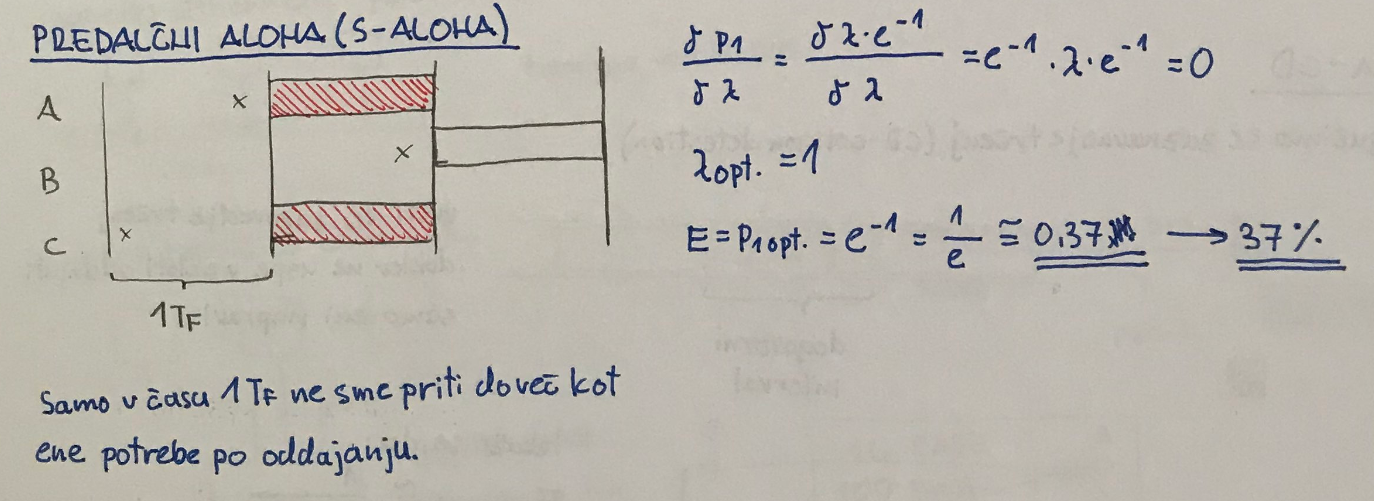 PREDALČNI ALOHA (S-ALOHA)
A
B
C
x
x
x
1TF
Samo v času 1TF ne sme priti do več kot
ene potrebe po oddajanju.
δP1/δλ = δλ·e⁻¹/δλ = e⁻¹·λ·e⁻¹ = 0
λopt. = 1
E = P1opt. = e⁻¹ = 1/e ≅ 0,37 → 37%